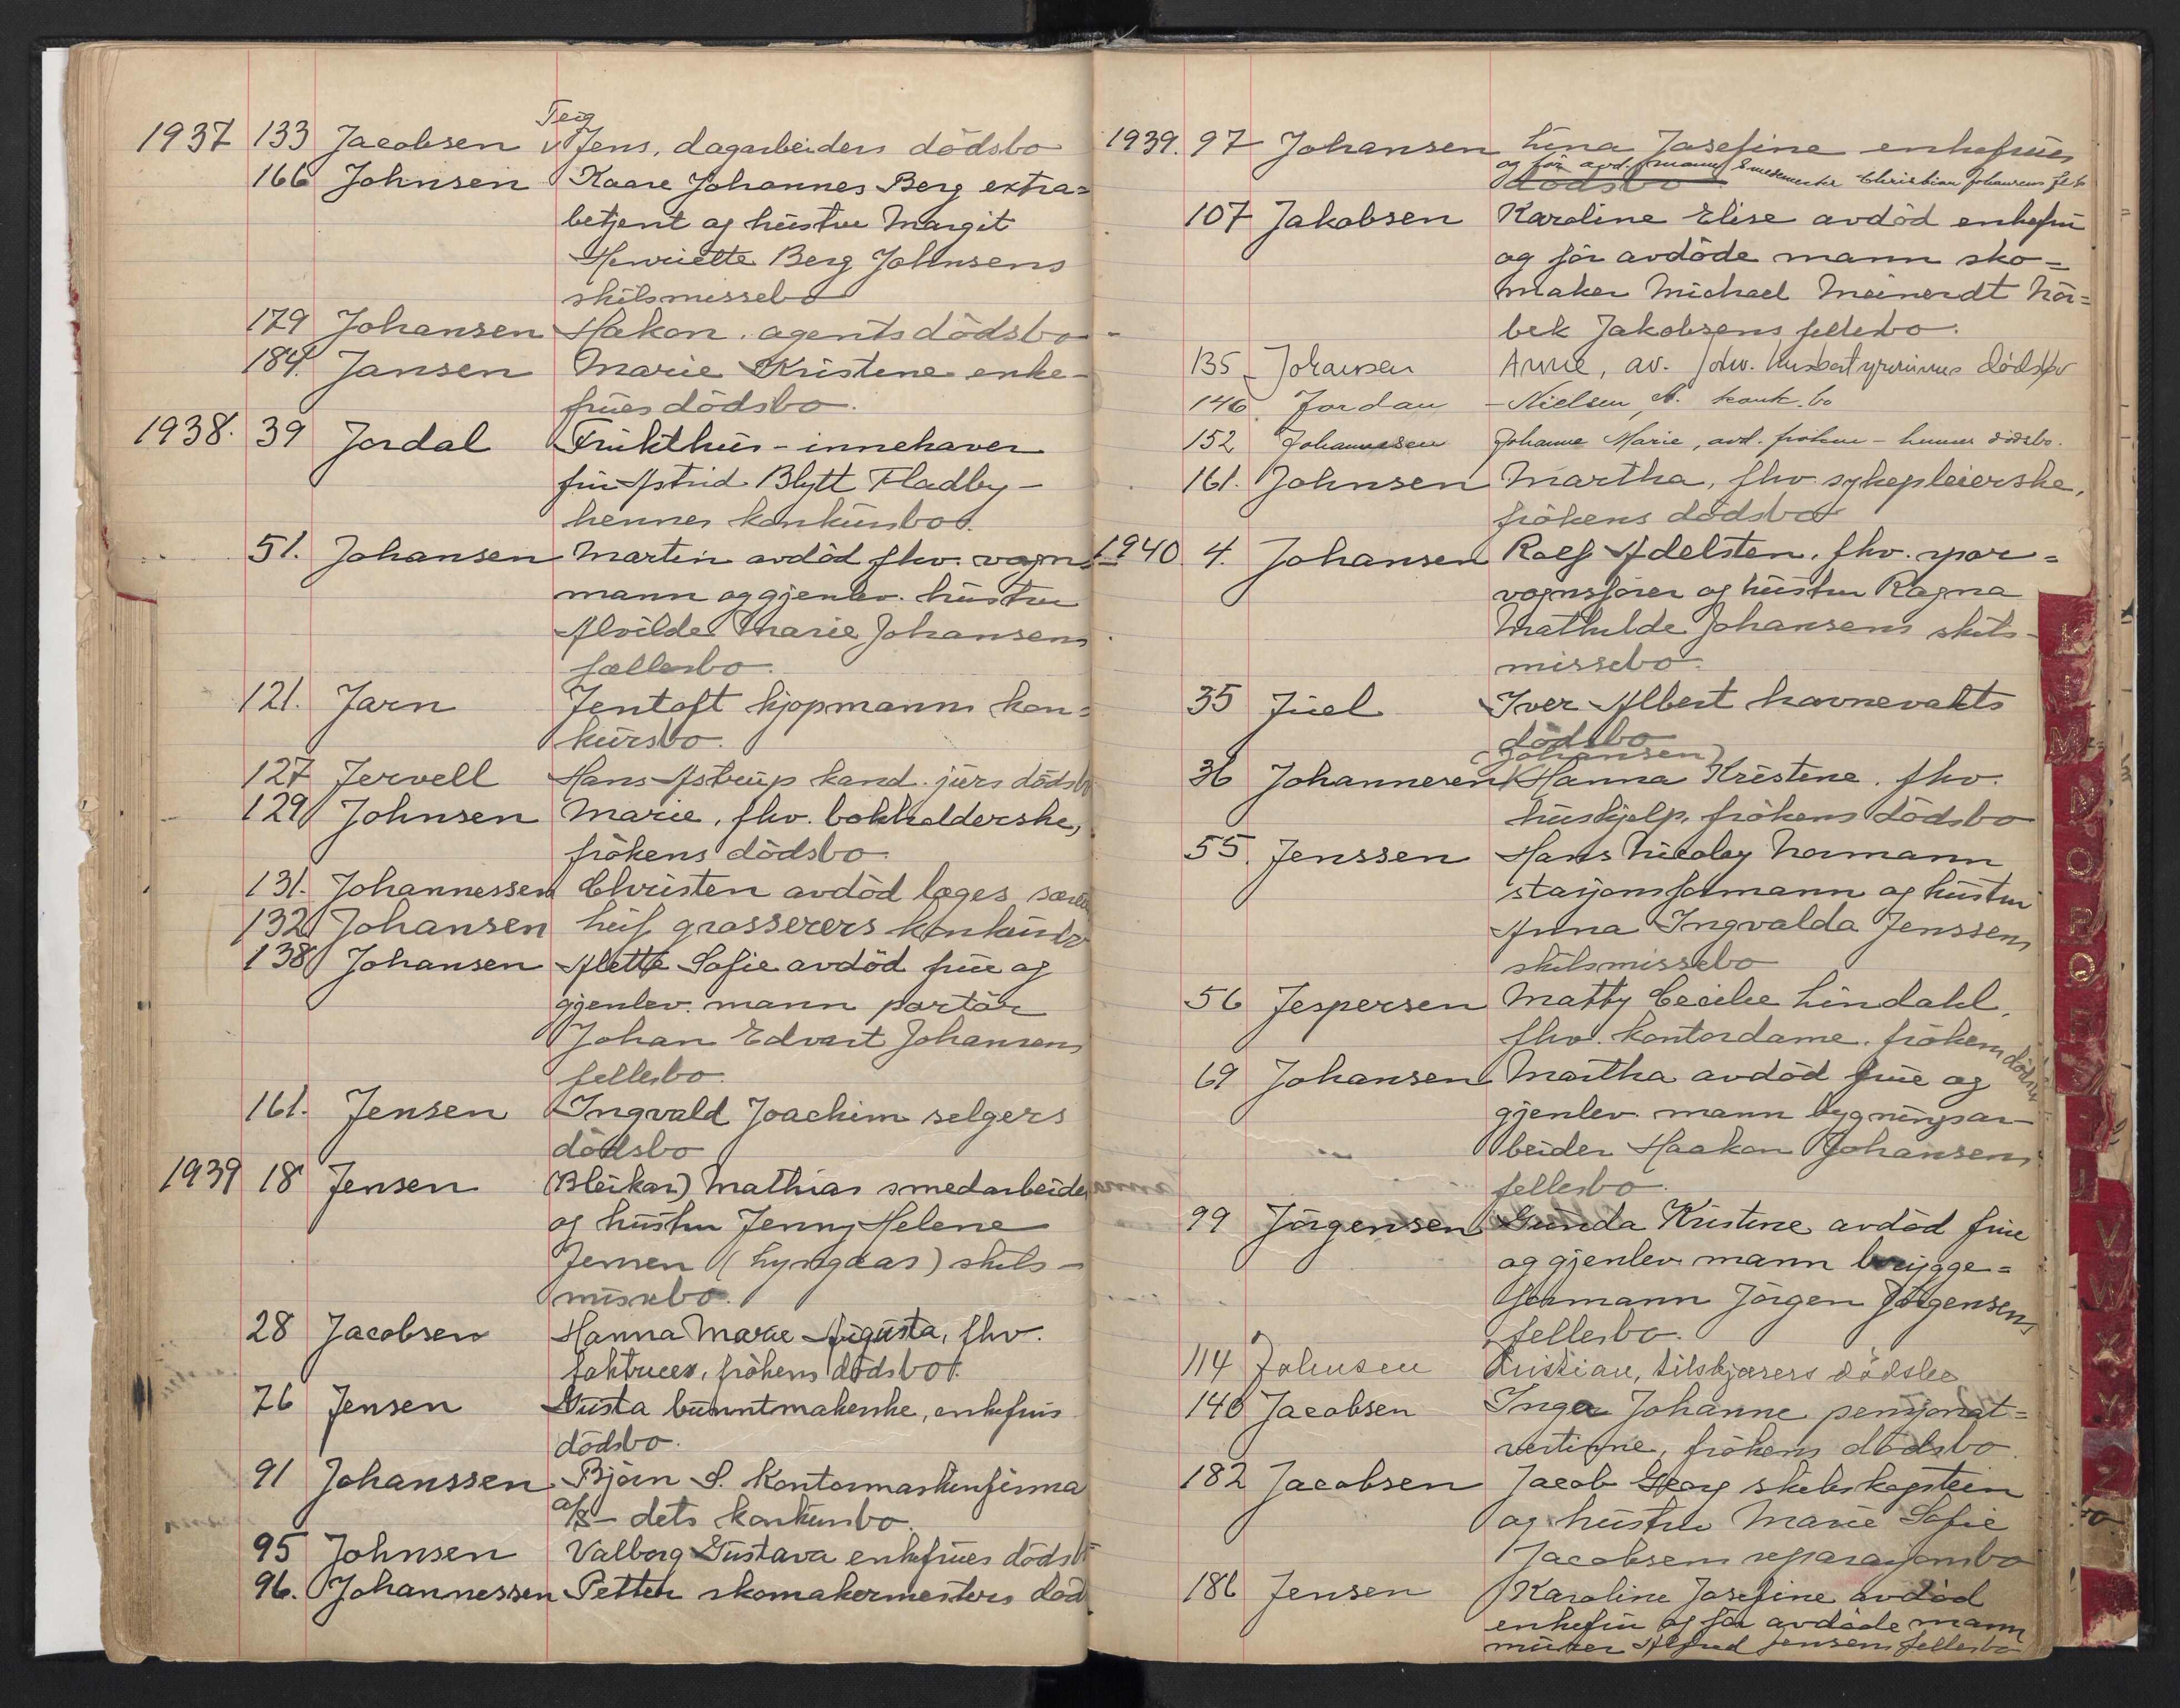 Teig
1937 133 Jacobsen v Jens, dagarbeiders dödsbo
166 Johnsen Kaare Johannes Berg extra=
betjent og hustru Margit
Henriette Berg Johnsens
skilsmissebo
179 Johansen Håkon. agents dödsbo
184. Jansen Marie Kristine enke-
frues dödsbo.
1938. 39 Jordal Frukthus - innehaver
fru Astrid Blytt Fladby -
hennes konkursbo.
51. Johansen Martin avdöd fhv. vogn-
mann og gjenlev. hustru
Alvilde Marie Johansens
fællesbo.
121. Jarn Jentoft kjöpmanns kon=
kursbo.
127 Jervell Hans Astrup kand. jurs dödsbo
129 Johnsen Marie, fhv. bokholderske,
frökens dödsbo.
131. Johannessen Christen avdöd læges
132 Johansen Leif grosserers konkursbo
138 Johansen Alette Sofie avdöd frue og
gjenlev. mann portör
Johan Edvart Johansens
fellesbo.
161. Jensen Ingvald Joachim selgers
dödsbo
1939 18 Jensen (Bleikar) Mathias smedarbeider
og hustru Jenny Helene
Jensen (Lyngaas) skils-
missebo.
28 Jacobsen Hanna Marie Augusta, fhv.
frökens dödsbo.
76 Jensen Gusta buntmakerske, enkefrus
dödsbo.
91 Johanssen Björn S. Kontormaskinfirma
a/s - dets konkursbo.
95 Johnsen Valborg Gustava enkefrues dödsbo
96. Johannessen Petter skomakermesters död
1939. 97 Johansen Lina Josefine enkefrues
og för avd. mann Smedmester Christian Johansens
dödsbo
107 Jakobsen Karoline Elise avdöd enkefru
og för avdöde mann sko=
maker Michael Meinerdt Nör=
bek Jakobsens fellesbo.
135 Johansen Anne, av. dödsbo
146 Jordan - Nielsen, A. konk.bo
152 Johannesen Johanne Marie, avd. fröken - hennes dödsbo.
161. Johnsen Martha, fhv. sykepleierske,
frökens dödsbo
1940. 4. Johansen Rolf Adelsten, fhv. spor=
vognsförer og hustru Ragna
Mathilde Johansens skils-
missebo.
35 Juel Iver Albert havnevakts
dödsbo
(Johansen)
36 Johannesen Hanna Kristine, fhv.
hushjelp, frökens dödsbo
55 Jenssen Hans Nicolay Normann
stasjonsformann og hustru
Anna Ingvalda Jenssens
skilsmissebo
56 Jespersen Matty Cecilie Lindahl,
fhv. kontordame, frökens dödsbo
69 Johansen Martha avdöd frue og
gjenlev. mann bygningsar-
beider Haakon Johansens
fellesbo.
99 Jörgensen Gunda Kristine avdöd frue
og gjenlev. mann brygge=
formann Jörgen Jörgensens
fellesbo.
114 Johnsen Kristian, tilskjærers dödsbo
140 Jacobsen Inga Johanne pensjonat=
vertinne, frökens dödsbo.
182 Jacobsen Jacob Georg skibskaptein
og hustru Marie Sofie
Jacobsens separasjonsbo
186 Jensen Karoline Josefine avdöd
enkefru og för avdöde mann
murer Alfred Jensens fellesbo
K
L
M
N
O
P
Q
R
S
T
V
W
X
Y
Z